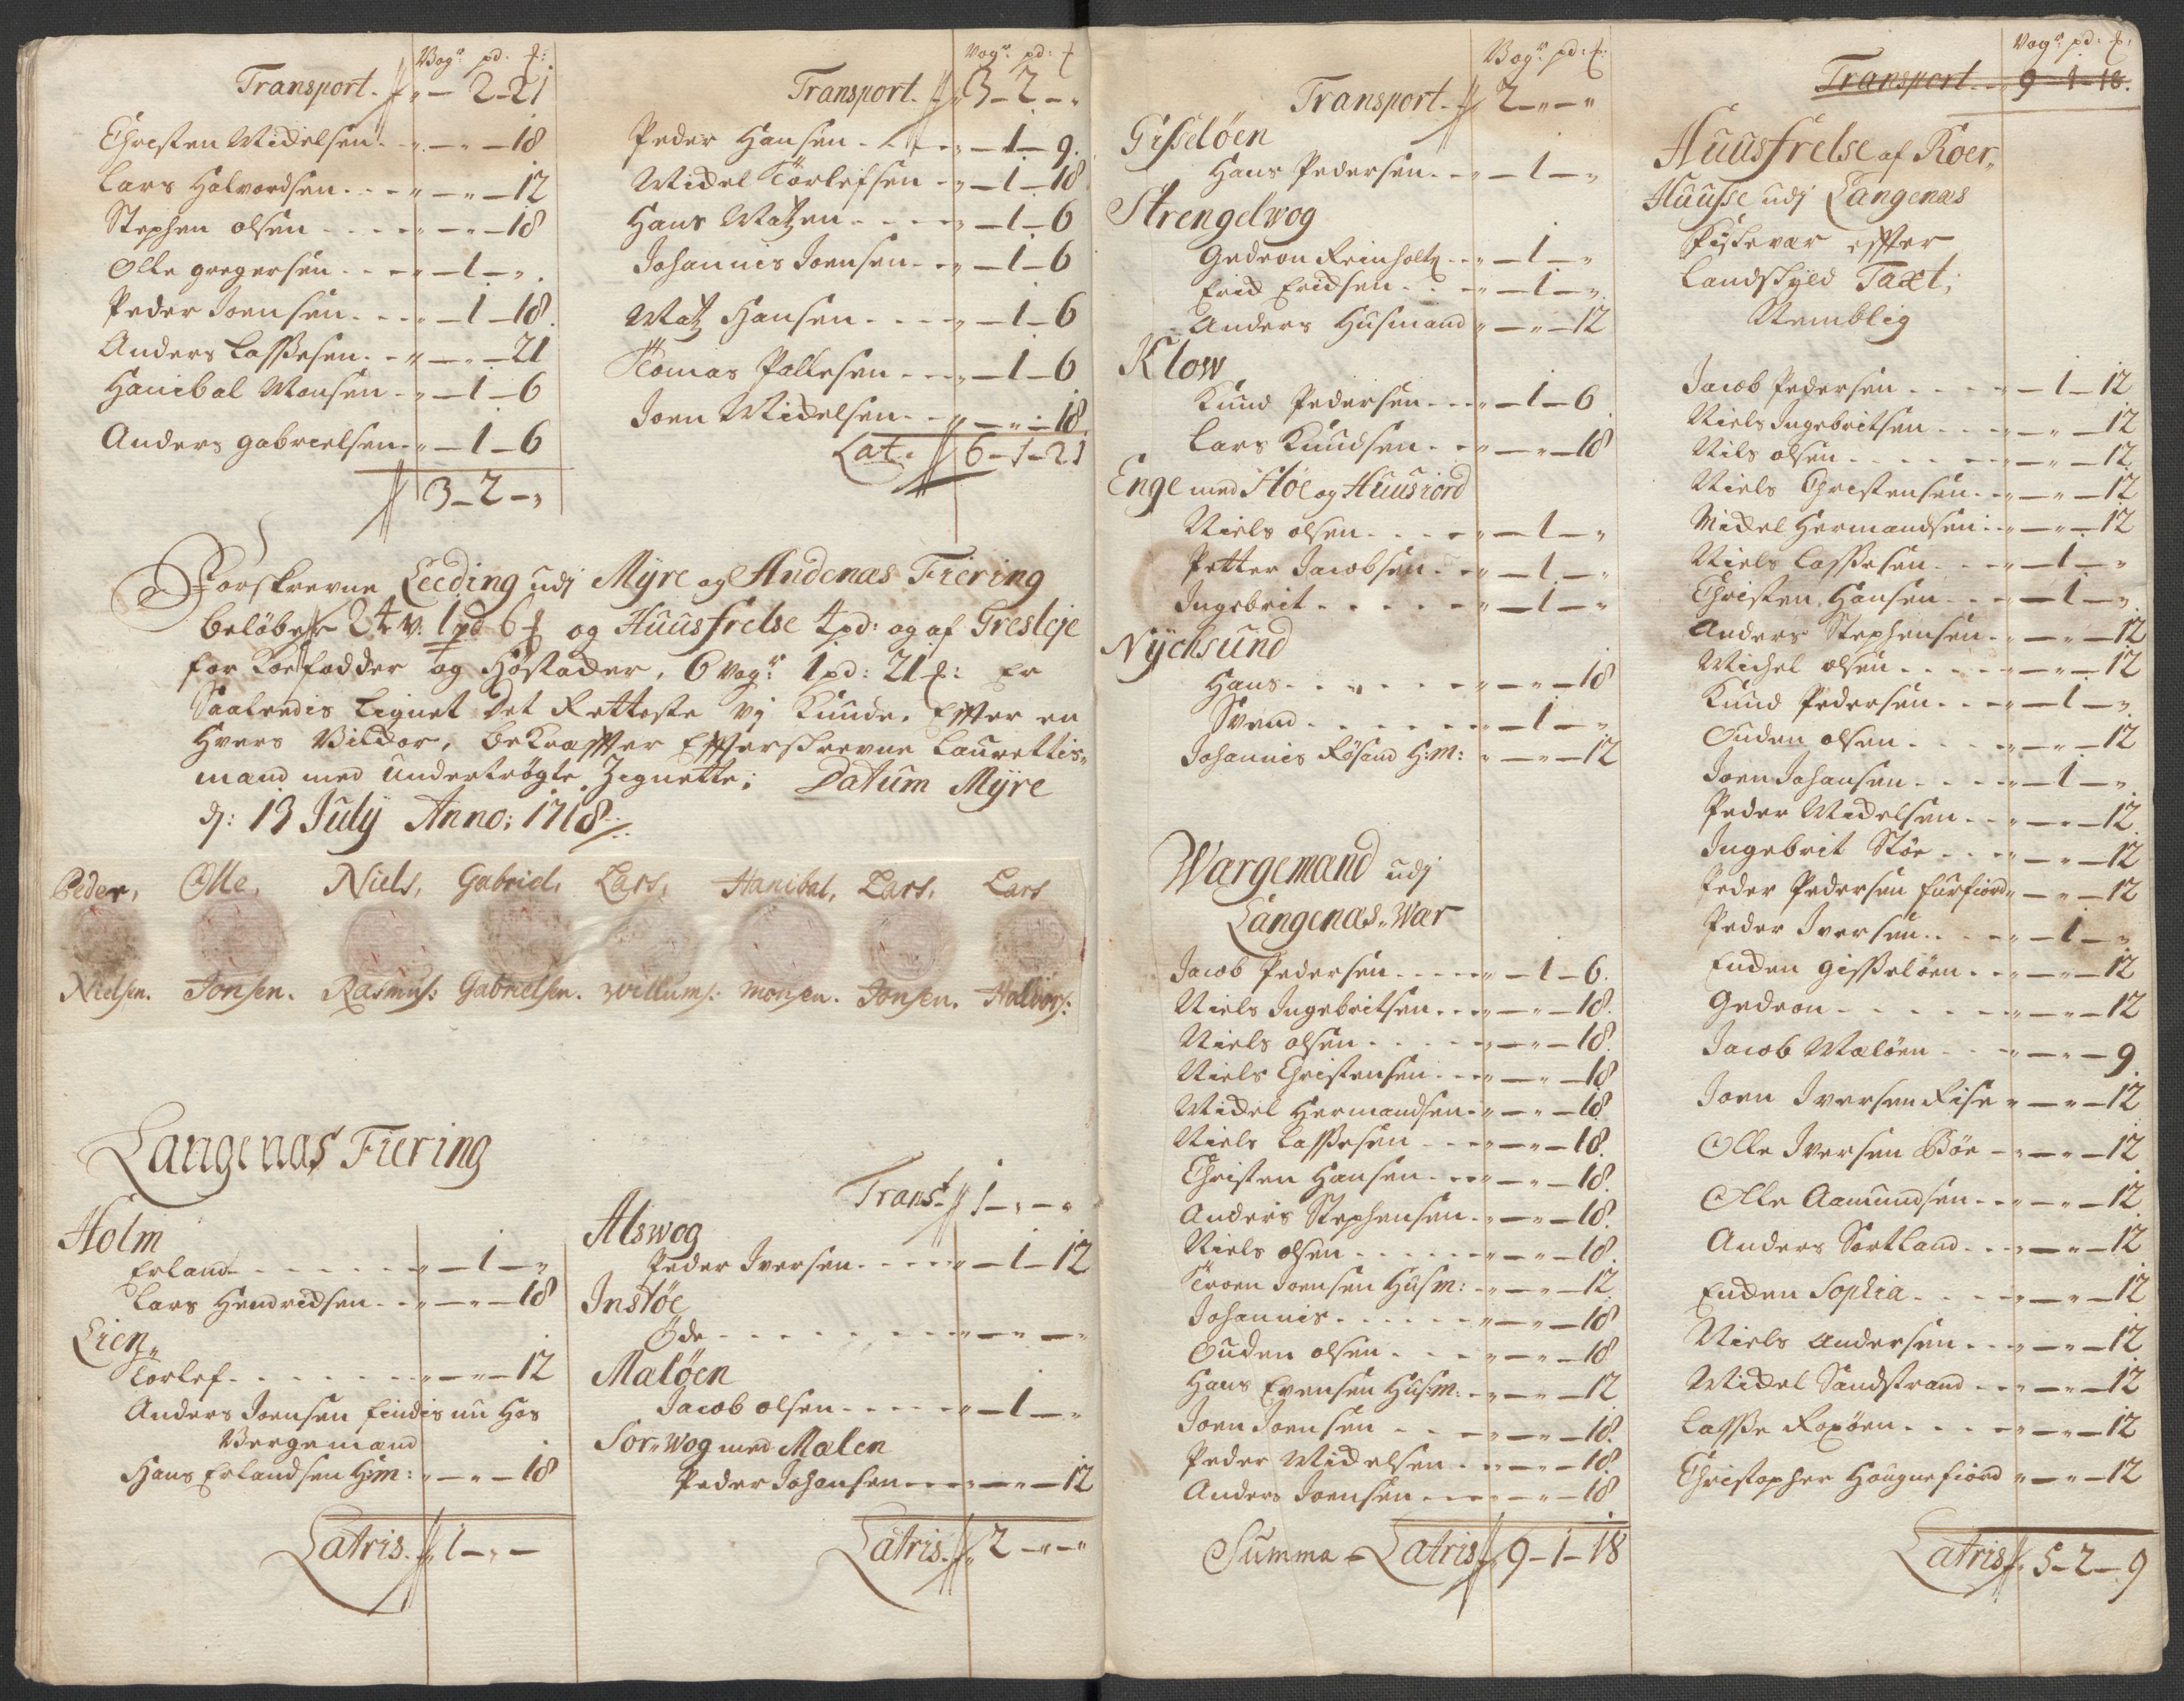 Vogr. pd. ℔:
Transport. „ — 2 - 21
Christen Michelsen „ — „ — 18
Lars Halvordsen „ — „ — 12
Stephen olsen „ — „ — 18
Olle gregersen „ — 1 — „
Peder Joensen „ — 1 — 18
Anders Lassesen „ — „ — 21
Hanibal Monsen „ — 1 — 6
Anders gabrielsen „ — 1 — 6
3 - 2 - „
Vogr. pd: ℔
Transport. 3 - 2 - „
Peder Hansen „ — 1 — 9
Michel Torlefsen „ — 1 — 18
Hans Matzen „ — 1 — 6
Johannis Joensen „ — 1 — 6
Matz Hansen „ — 1 — 6
Tomas Pallesen „ — 1 — 6
Joen Michelsen „ — „ — 18
Lat. 6 - 1 - 21
Forskrevne Leeding udj Myre og Andenæs Fiering
beløber 24 v. 1 pd 6 ℔ og Huusfrelse 4 pd: og af Gresleje
for Koefodder og Høstader, 6 Vogr 1 pd: 21 ℔: Er
Saaledis Lignet det Retteste vj Kunde, Effter en
Hvers Vilckor, bekræffter Effterskrevne Laurettis„
mænd med undertrøgte Zignette; Datum Myre
dj: 13 July Anno: 1718
Peder, Olle, Niels, Gabriel, Lars, Hanibal, Lars, Lars
Nielsen. Jonsen. Rasmus: Gabrielsen. Willums: Monsen. Jonsen. Halvors:
Langenæs Fiering
Holm
Erland „ — 1 — „
Lars Hendrichsen „ — „ — 18
Lien„
Torlef „ — „ — 12
Anders Joensen findis nu Hos
Vergemænd
Hans Erlandsen H:M: „ — „ — 18
Latris. 1 - „ -
Transt 1 - „ - „
Alswog
Peder Iversen „ — 1 — 12
Instøe
Øde „ — „ — „
Maløen
Jacob olsen „ — 1 — „
Sor„Wog med Malen
Peder Johansen „ — „ — 12
Latris. 2 - „ - „
Vogr: pd: ℔:
Transport. 2 - „ - „
Gisseløen
Hans Pedersen „ — 1 — „
Strengelwog
Gedeon Reinholtz „ — 1 — „
Erich Erichsen „ — 1 — „
Anders Husmand „ — „ — 12
Klow
Knud Pedersen „ — 1 — 6
Lars Knudsen „ — „ — 18
Enge med Støe og Huusiord
Niels olsen „ — 1 — „
Petter Jacobsen „ — 1 — „
Ingebrit „ — 1 — „
Nychsund
Hans „ — „ — 18
Svend „ — 1 — „
Johannis Røsand H:M: „ — „ — 12
Wargemænd udj
Langenæs„War
Jacob Pedersen „ — 1 — 6
Niels Ingebritsen „ — „ — 18
Niels olsen „ — „ — 18
Niels Christensen „ — „ — 18
Michel Hermandsen „ — „ — 18
Niels Lassesen „ — „ — 18
Christen Hansen „ — „ — 18
Anders Stephensen „ — „ — 18
Niels olsen „ — „ — 18
Troen Joensen Husm: „ — „ — 12
Johannis „ — „ — 18
Ouden olsen „ — „ — 18
Hans Evensen Husm: „ — „ — 12
Joen Joensen „ — „ — 18
Peder Michelsen „ — „ — 18
Anders Joensen „ — „ — 18
Summa - Latris 9 - 1 - 18
Vogr. pd: ℔:
Transport. 9 - 1 - 18.
Huusfrelse af Roer„
Huusse udj Langenæs
Fiskevær effter
Landskyld Taxt;
Nemblig
Jacob Pedersen „ — 1 — 12
Niels Ingebritsen „ — „ — 12
Nils olsen „ — „ — 12
Niels Christensen „ — „ — 12
Michel Hermandsen „ — „ — 12
Niels Lassesen „ — 1 — „
Christen Hansen „ — 1 — „
Anders Stephensen „ — „ — 12
Michel olsen „ — „ — 12
Knud Pedersen „ — 1 — „
Ouden olsen „ — „ — 12
Joen Johansen „ — 1 — „
Peder Michelsen „ — „ — 12
Ingebrit Støe „ — „ — 12
Peder Pedersen furfiord „ — „ — 12
Peder Iversen „ — 1 — „
Enden gisseløen „ — „ — 12
Gedeon „ — „ — 12
Jacob Maløen „ — „ — 9
Joen Iversen Rise „ — „ — 12
Olle Iversen Bøe „ — „ — 12
Olle Aamundsen „ — „ — 12
Anders Sortland „ — „ — 12
Enden Sophia „ — „ — 12
Niels Andersen „ — „ — 12
Michel Sandstrand „ — „ — 12
Lasse Roxøen „ — „ — 12
Christopher Haugnefiord „ — „ — 12
Latris 5 - 2 - 9